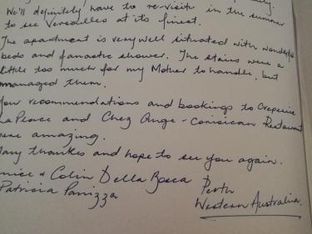 We'll definitely have to re-visit in the summer
to see Versailles at its finest.
The apartment is very well situated with wonderful
beds and fantastic shower. The stairs were a
little too much for my Mother to handle, but
managed them.
Your recommendations and bookings to Creperie
La Place and Chez Ange - Corsican Restaurant
were amazing.
Many thanks and hope to see you again.
& Colin Della Bosca Perth
Patricia Panizza Western Australia